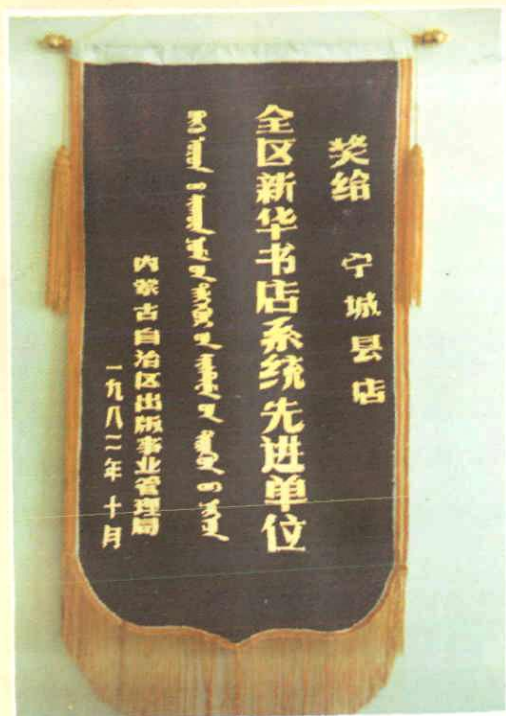 奖给 宁城县店
全区新华书店系统先进单位
内蒙古自治区出版事业管理局
一九八二年十月